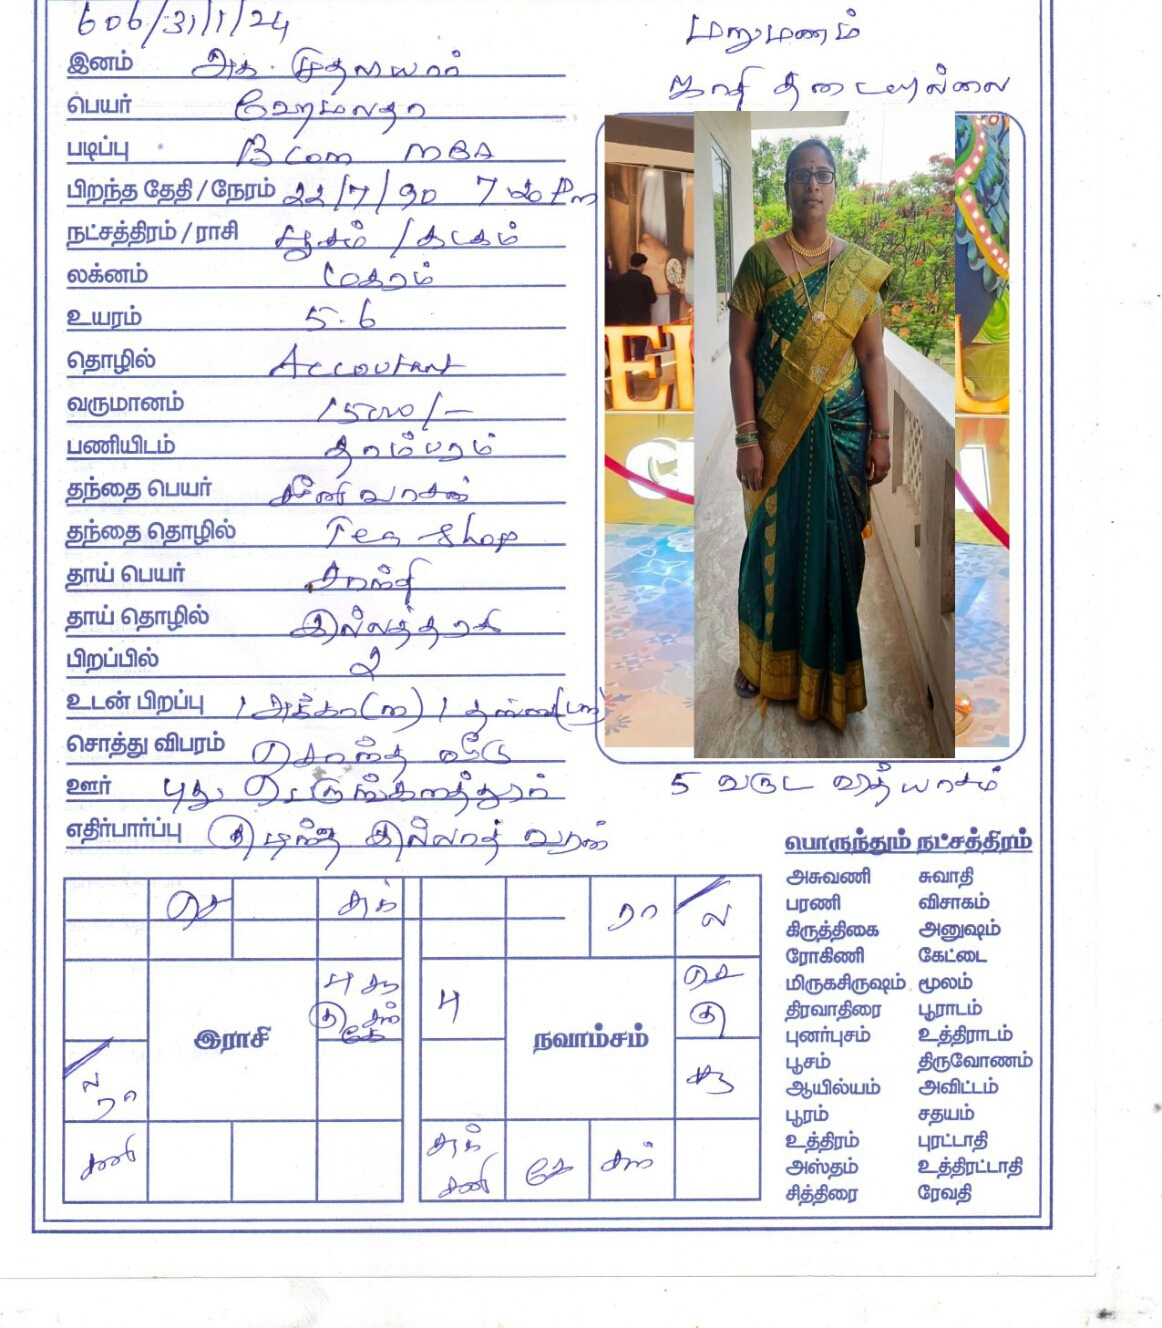 606/31/1/24
மறுமணம்
ஜாதி தடையில்லை
இனம் அக. முதலியார்
பெயர் ஹேமலதா
படிப்பு B com MBA
பிறந்த தேதி / நேரம் 22/7/90 7 Pm
நட்சத்திரம் / ராசி பூசம் / கடகம்
லக்னம் மகரம்
உயரம் 5.6
தொழில் Accoutant
வருமானம் 15000/-
பணியிடம் தாம்பரம்
தந்தை பெயர் சீனிவாசன்
தந்தை தொழில் Tea shop
தாய் பெயர் சாந்தி
தாய் தொழில் இல்லத்தரசி
பிறப்பில் 2
உடன் பிறப்பு 1 அக்கா 1
சொத்து விபரம் சொந்த வீடு
ஊர் புது பெருங்களத்தூர்
எதிர்பார்ப்பு குழந்தை இல்லாத வரன்
5 வருட வித்யாசம்
பொருந்தும் நட்சத்திரம்
அசுவணி சுவாதி
பரணி விசாகம்
கிருத்திகை அனுஷம்
ரோகிணி கேட்டை
மிருகசிருஷம் மூலம்
திரவாதிரை பூராடம்
புனர்புசம் உத்திராடம்
பூசம் திருவோணம்
ஆயில்யம் அவிட்டம்
பூரம் சதயம்
உத்திரம் புரட்டாதி
அஸ்தம் உத்திரட்டாதி
சித்திரை ரேவதி
செ சுக்
பு சூ
கு சந்
கே
இராசி
ல
ரா
சனி
ரா ல
பு
செ
கு
நவாம்சம்
சூ
சுக்
சனி
கே சந்